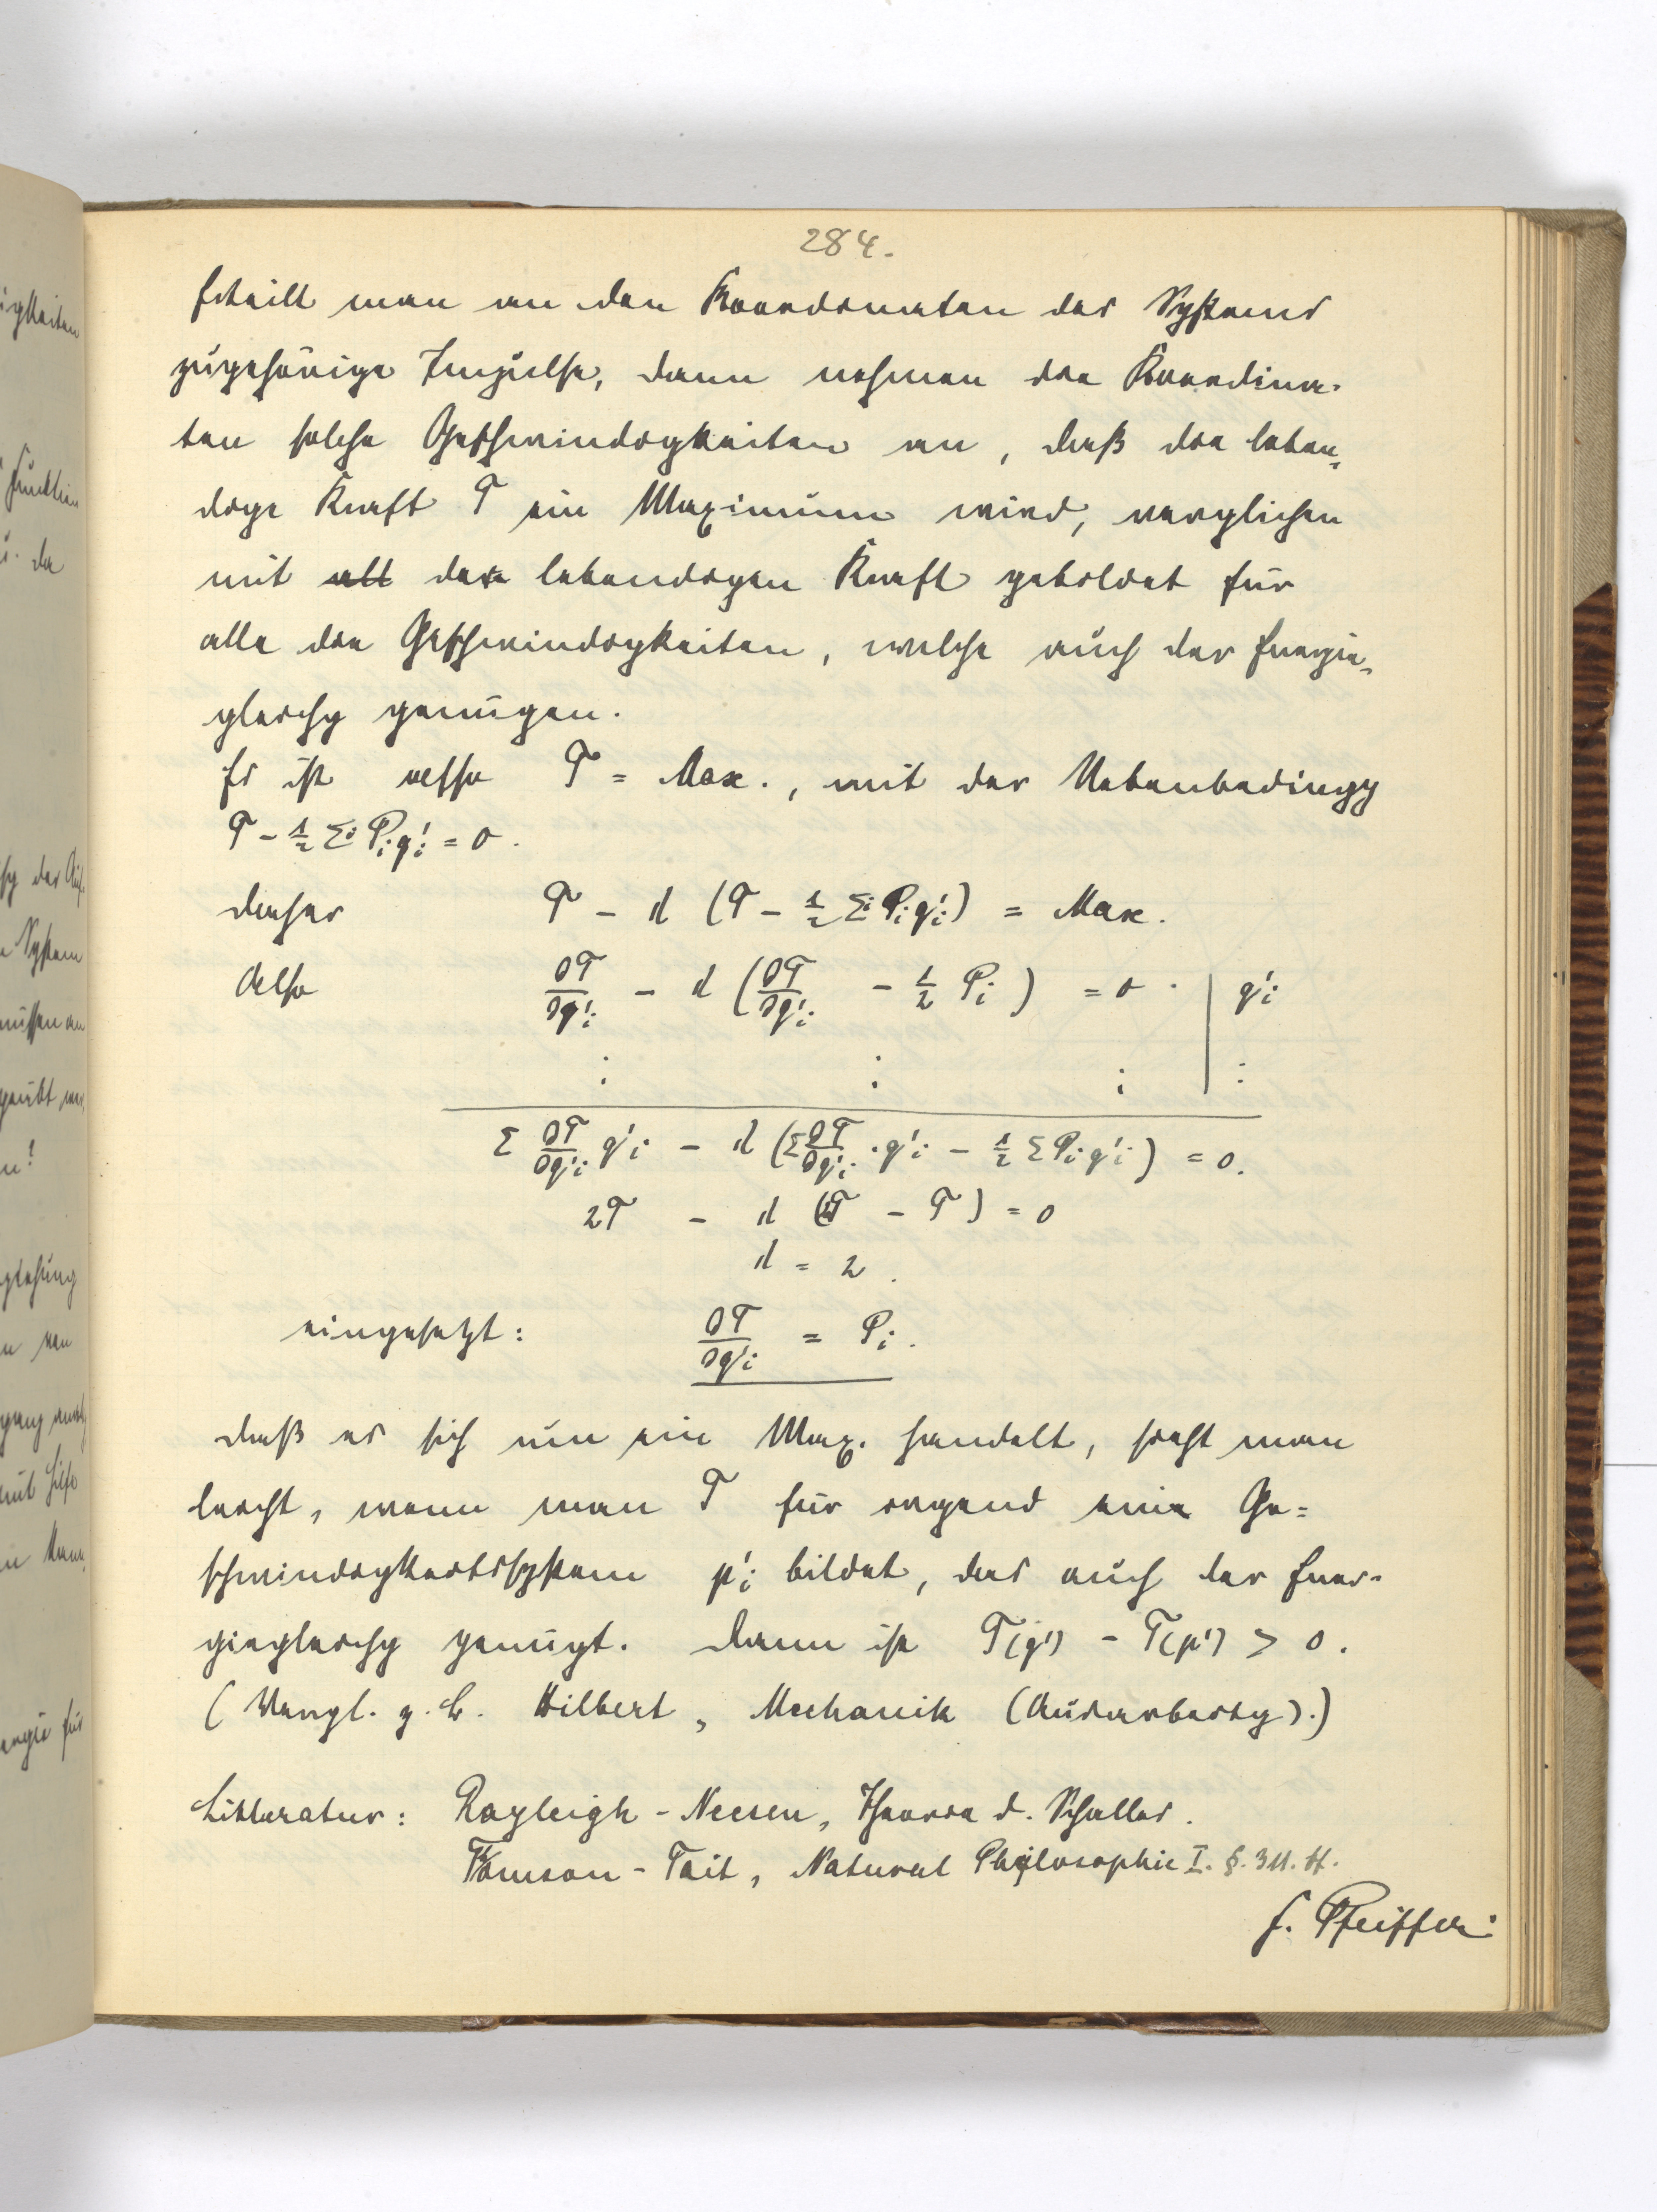 284.
Erteilt man an den Koordinaten des Systems
zugehörige Impulse, dann nehmen die Koordina-
ten solche Geschwindigkeiten an, daß die leben-
dige Kraft T ein Maximum wird, verglichen
mit all der lebendigen Kraft gebildet für
alle die Geschwindigkeiten, welche auch der Energie-
gleichg genügen.
Es ist also T = Max., mit der Nebenbedingg
T - ½ Σ Pᵢq'ᵢ = 0.
daher T - λ (T - ½ Σ Pᵢq'ᵢ) = Max.
Also ∂T/∂q'ᵢ - λ (∂T/∂q'ᵢ - ½ Pᵢ) = 0 · | q'ᵢ
⋮ ⋮ ⋮ | ⋮
Σ ∂T/∂q'ᵢ q'ᵢ - λ (Σ ∂T/∂q'ᵢ · q'ᵢ - ½ Σ Pᵢq'ᵢ) = 0.
2T - λ (2T - T) = 0
λ = 2.
eingesetzt: ∂T/∂q'ᵢ = Pᵢ.
daß es sich um ein Max. handelt, sieht man
leicht, wenn man T für irgend ein Ge=
schwindigkeitssystem p'ᵢ bildet, das auch der Ener-
giegleichg genügt. Dann ist T(q') - T(p') > 0.
(Vergl. z. B. Hilbert, Mechanik (Ausarbeitg).)
Litteratur: Rayleigh - Neesen, Theorie d. Schalles.
Tomson - Tait, Natural Philosophie I. §. 311. ff.
F. Pfeiffer.
igkeiten
Funktion
u. der
System
müssen an
geübt
n!
n von
mit Hilfe
ergie für